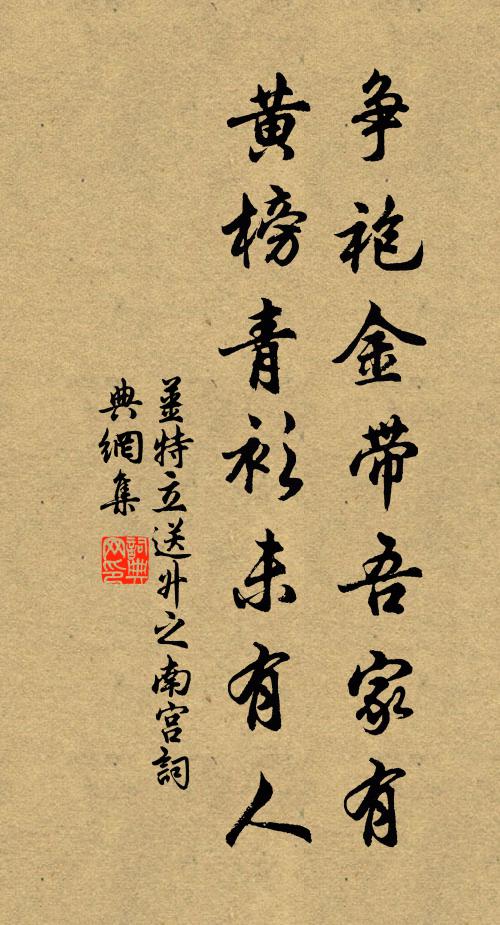 争袍金带吾家有
黄榜青衫未有人
姜特立送升之南宫詞
典網集
詞典
网印